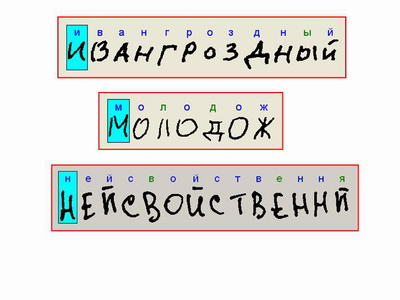 ивангроздный
ИВАНГРОЗДНЫЙ
молодож
МОЛОДОЖ
нейсвойствення
НЕЙСВОЙСТВЕННЙ